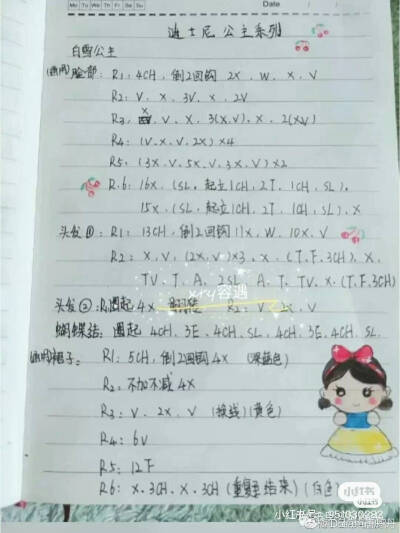 Mo Tu We Th Fr Sa Su
Date
迪士尼公主系列
白雪公主
(通用)脸部: R1: 4CH, 倒2回钩 2X、W、X、V
R2: V、X、3V、X、2V
R3: X、V、X、3(X.V)、X、2(XV)
R4: (V、X、V、2X)×4
R5: (3X、V、5X、V、3X、V)×2
R6: 16X、(SL, 起立1CH, 2T, 1CH, SL)、
15X、(SL, 起立1CH, 2T, 1CH, SL)、X
头发①: R1: 13CH, 倒2回钩 11X、W、10X、V
R2: X、V、(2X、V)×3、X、(T.F.3CH)、X、
TV、T、A、2SL、A、T、TV、X、(T.F.3CH)
xry容遇
头发②: R1圈起 4X R2: V、2X、V
蝴蝶结: 圈起 4CH、3E、4CH、SL、4CH、3E、4CH、SL
(通用)裙子: R1: 5CH, 倒2回钩 4X (深蓝色)
R2: 不加不减 4X
R3: V、2X、V (换线)(黄色)
R4: 6V
R5: 12F
R6: X、3CH、X、3CH (重复至结束)(白色)
小红书
小红书号: 951030292